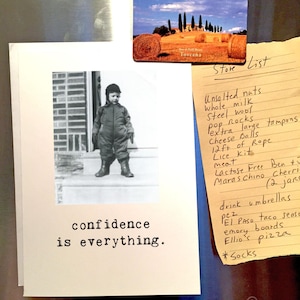 Tuscany
Store List
Unsalted nuts
whole milk
Steel wool
Pop Rocks
extra large tampons
Cheese Balls
12ft of Rope
Lice kit
meat
Lactose Free Ben +
Maraschino Cherri
(2 jars
drink umbrellas
pez
El Paso taco seas
emory boards
Ellio's pizza
* Socks
confidence
is everything.